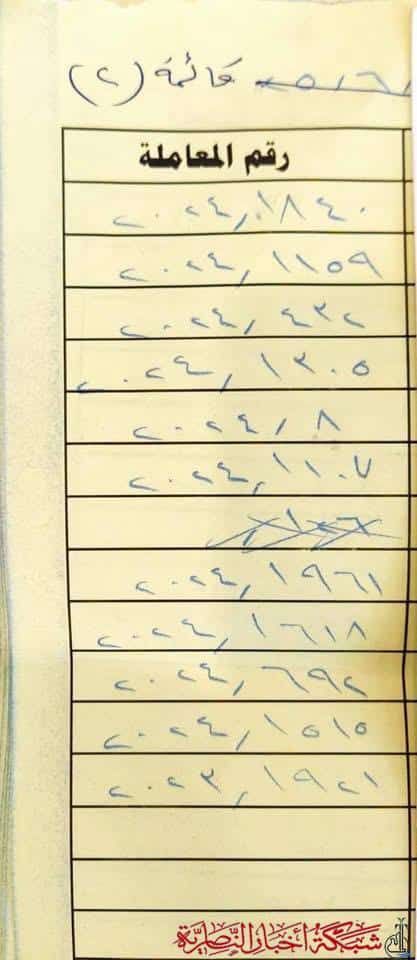 قائمة (٢)
رقم المعاملة
١٨٤٠ / ٢٠٢٤
١١٥٩ / ٢٠٢٤
٤٣٢ / ٢٠٢٤
١٣٠٥ / ٢٠٢٤
٨ / ٢٠٢٤
١١٠٧ / ٢٠٢٤
١٩٦١ / ٢٠٢٤
١٦١٨ / ٢٠٢٤
٦٩٢ / ٢٠٢٤
١٥١٥ / ٢٠٢٤
١٩٢١ / ٢٠٢٣
شبكة أخبار الناصرية